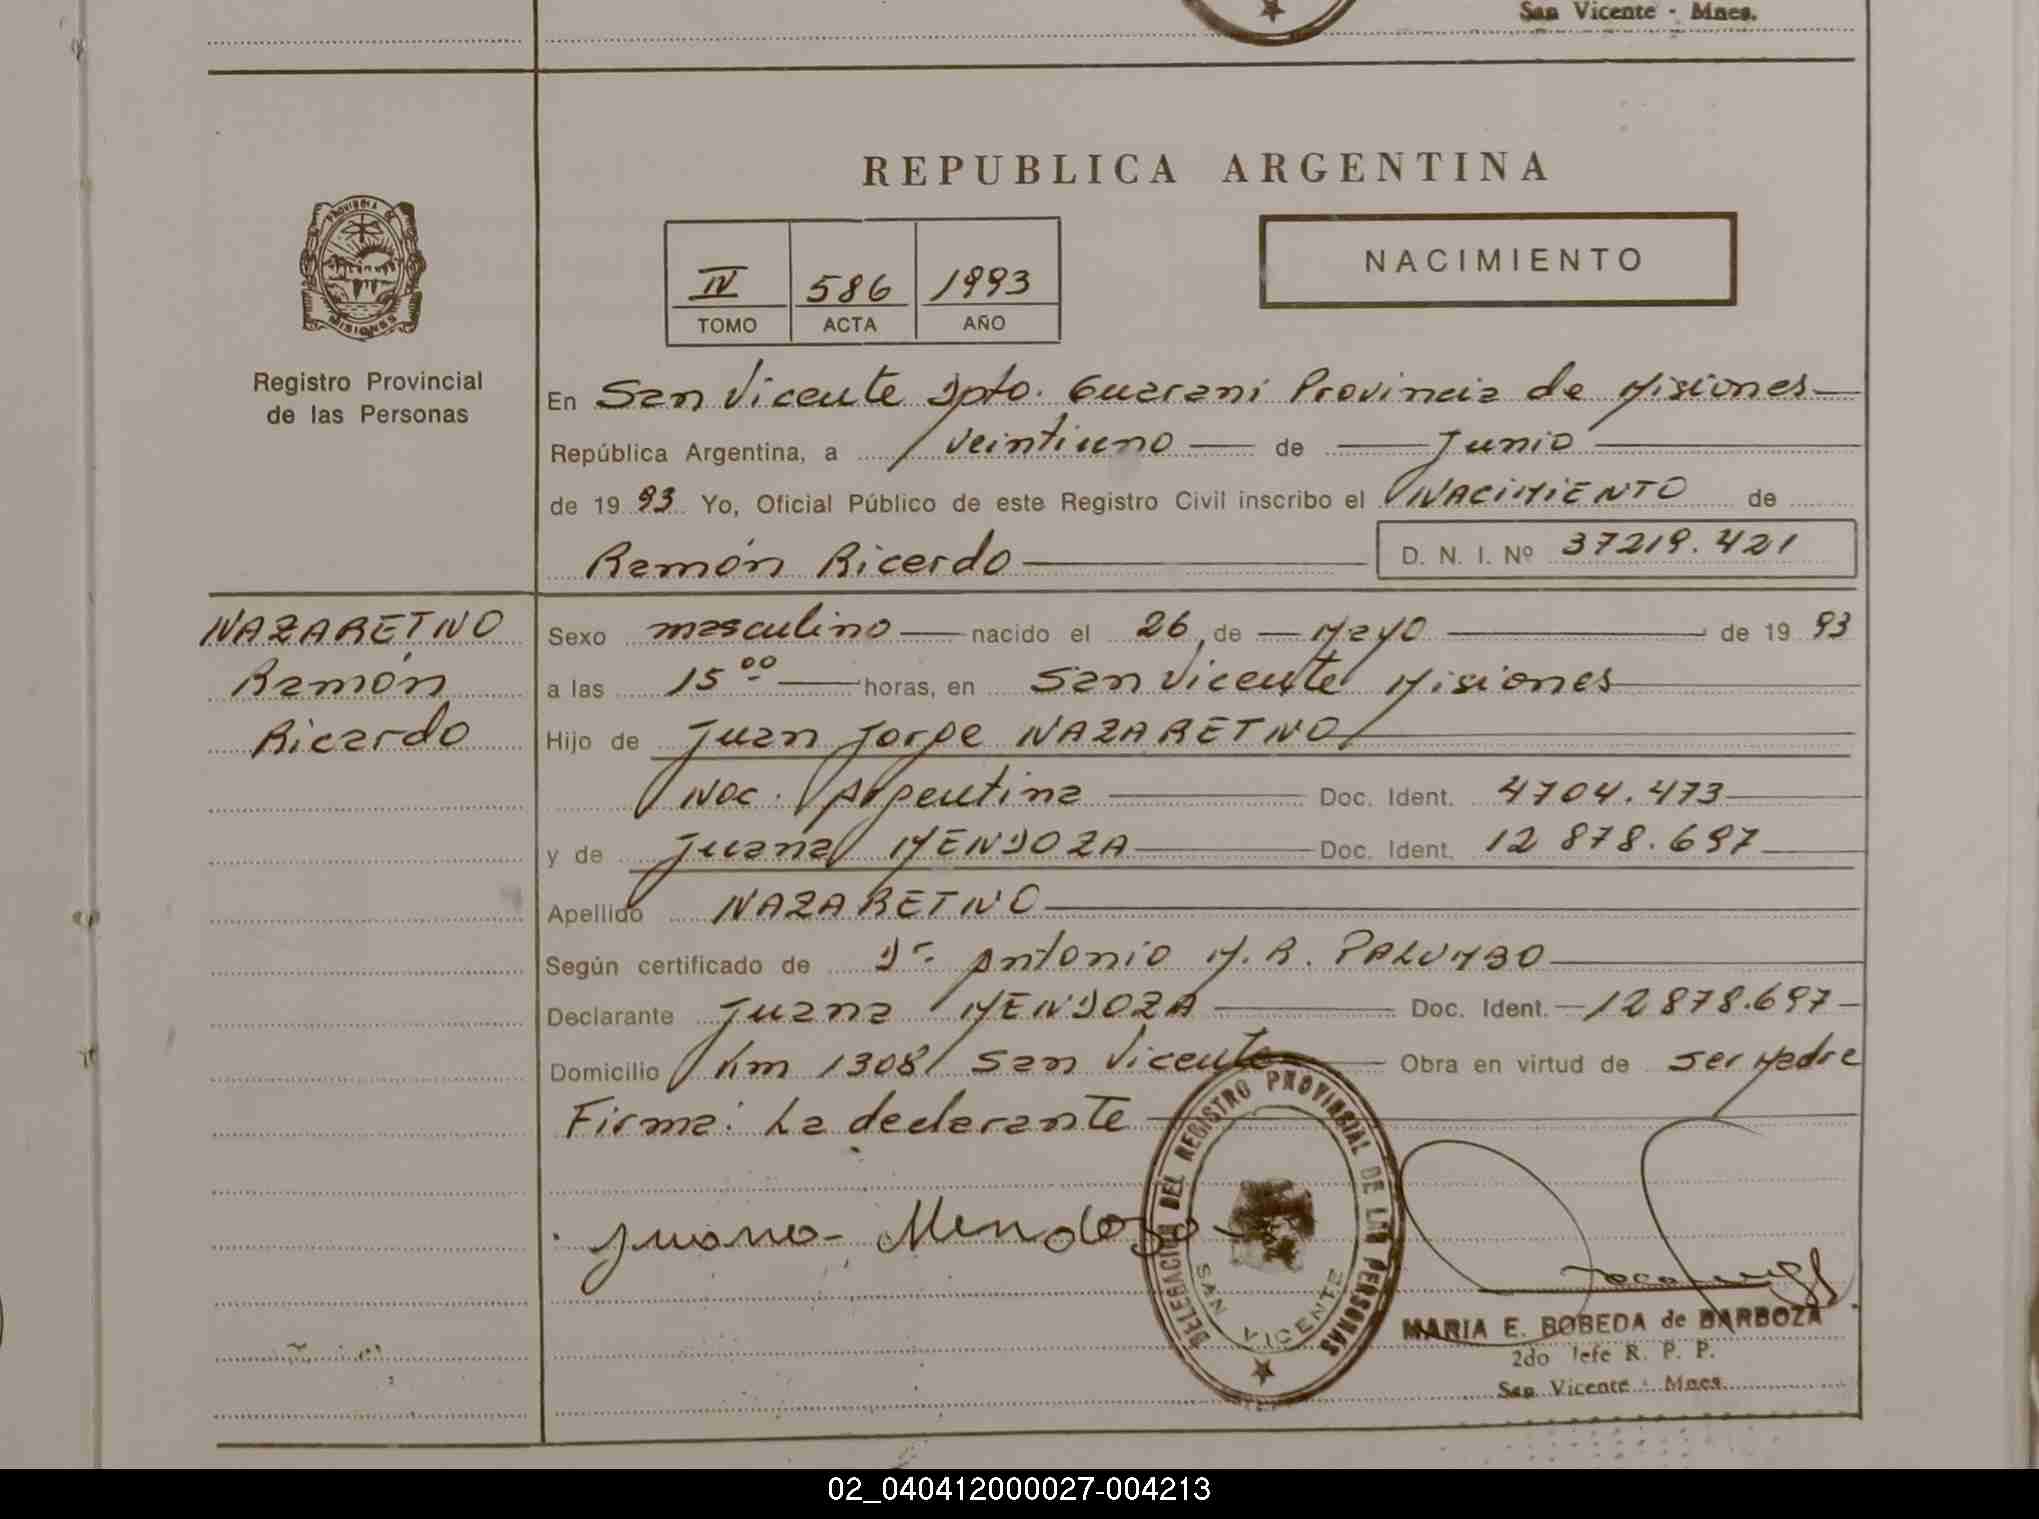 San Vicente - Mnes.
REPUBLICA ARGENTINA
PROVINCIA DE
MISIONES
Registro Provincial
de las Personas
IV 586 1993
TOMO ACTA AÑO
NACIMIENTO
En San Vicente Dpto. Guarani Provincia de Misiones
República Argentina, a veintiuno de Junio
de 1993 Yo, Oficial Público de este Registro Civil inscribo el NACIMIENTO de
Ramón Ricardo D. N. I. Nº 37219.421
NAZARETNO
Ramón
Ricardo
Sexo masculino nacido el 26 de Mayo de 1993
a las 15 00 horas, en San Vicente Misiones
Hijo de Juan Jorge NAZARETNO
Nac. Argentina Doc. Ident. 4704.473
y de Juana MENDOZA Doc. Ident. 12 878.697
Apellido NAZARETNO
Según certificado de Dr. Antonio M. R. PALUMBO
Declarante Juana MENDOZA Doc. Ident. 12878.697
Domicilio Km 1308 San Vicente Obra en virtud de ser Madre
Firma: La declarante
Juana Mendoza
DELEGACION DEL REGISTRO PROVINSIAL DE LAS PERSONAS
SAN VICENTE
MARIA E. BOBEDA de BARBOZA
2do Jefe R. P. P.
San Vicente - Mnes.
02_040412000027-004213